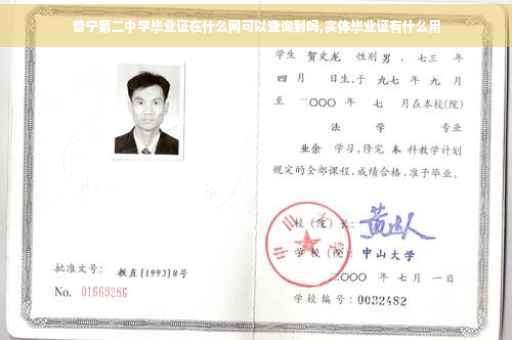 普宁第二中学毕业证在什么网可以查询到吗,实体毕业证有什么用
学生 贺文龙 性别 男 、七三 年
四 月 日生,于 九七 年 九 月
至 二〇〇〇 年 七 月在本校(院)
法 学 专业
业余 学习,修完 本 科教学计划
规定的全部课程,成绩合格,准予毕业。
校 (院) 长:
学 校 (院): 中山大学
二〇〇〇 年 七 月 一 日
学校编号: 0032482
批准文号: 教直[1993]8号
No. 01669286